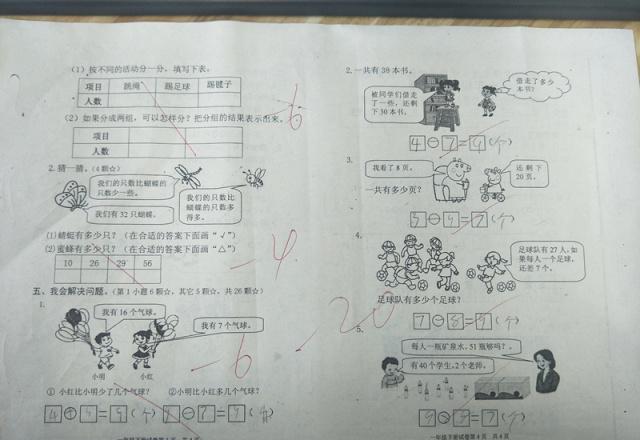 (1)按不同的活动分一分，填写下表。
项目 跳绳 踢足球 踢毽子
人数
6
(2)如果分成两组，可以怎样分？把分组的结果表示出来。
项目
人数
2.猜一猜。(4颗☆)
我们的只数比蝴蝶的只数少一些。
我们的只数比蝴蝶的只数多得多。
我们有32只蝴蝶。
(1)蜻蜓有多少只？(在合适的答案下面画“√”)
(2)蜜蜂有多少只？(在合适的答案下面画“△”)
10 26 29 56
-4
五、我会解决问题。(第1小题6颗☆，其它5颗☆，共26颗☆)
1.
我有16个气球。
我有7个气球。
小明 小红
-6
①小红比小明少了几个气球？ ②小明比小红多几个气球？
-20
2.一共有38本书。
被同学们借走了一些，还剩下30本书。
借走了多少本书？
4-7=4(个)
3.
我看了8页。
还剩下20页。
一共有多少页？
4.
足球队有27人，如果每人一个足球，还差7个。
足球队有多少个足球？
5.
每人一瓶矿泉水，51瓶够吗？
有40个学生，2个老师。
一年级下册试卷第4页 共4页